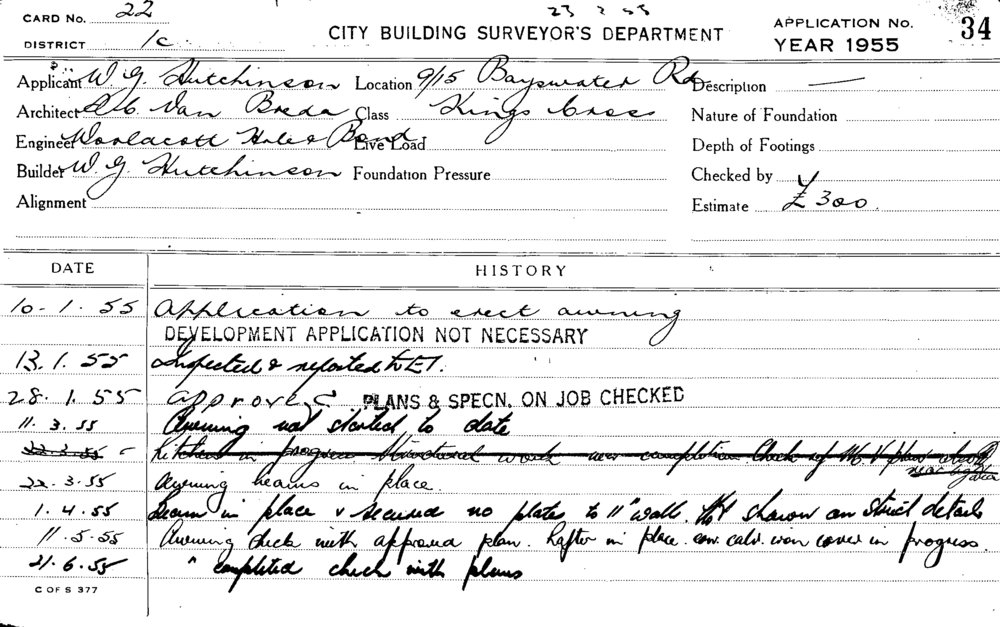 CARD No. 22
23 2 55
CITY BUILDING SURVEYOR'S DEPARTMENT
APPLICATION No. 34
YEAR 1955
DISTRICT 1c
Applicant W. G. Hutchinson Location 9/15 Bayswater Rd Description —
Architect Van Breda Class Kings Cross Nature of Foundation
Engineer Woolacott Hale & Bond Live Load Depth of Footings
Builder W. G. Hutchinson Foundation Pressure Checked by
Alignment Estimate £300.
DATE HISTORY
10-1.55 Application to erect awning
DEVELOPMENT APPLICATION NOT NECESSARY
13.1.55 Inspected & reported to E1.
28.1.55 approved PLANS & SPECN. ON JOB CHECKED
11.3.55 Awning not started to date
22.3.55 Kitchen in progress Structural work near completion. Check of
22.3.55 Awning beams in place.
1.4.55 Beam in place & secured no plates to 11" wall. shown on Struct details
11.5.55 Awning check with approved plan. Rafter in place. iron cover in progress.
21.6.55 " completed check with plans
C OF S 377